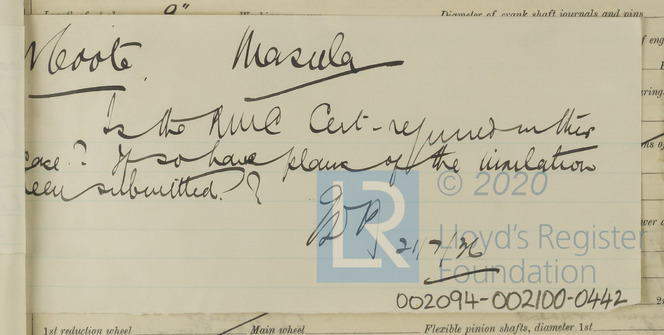 9"
Diameter of crank shaft journals and pins
Coote. Masula
Is the RMC Cert - required in this
case? If so have plans of the insulation
been submitted?
21/7/26
© 2020
LR
Lloyd's Register
Foundation
002094-002100-0442
1st reduction wheel Main wheel Flexible pinion shafts, diameter 1st